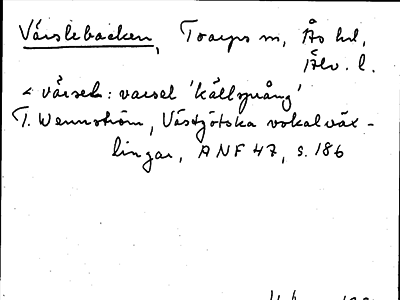 Värslebacken, Toarps sn, Ås hd,
Älv. l.
< värsel: varsel 'källsprång'
T. Wennström, Västgötska vokalväx-
lingar, ANF 47, s. 186